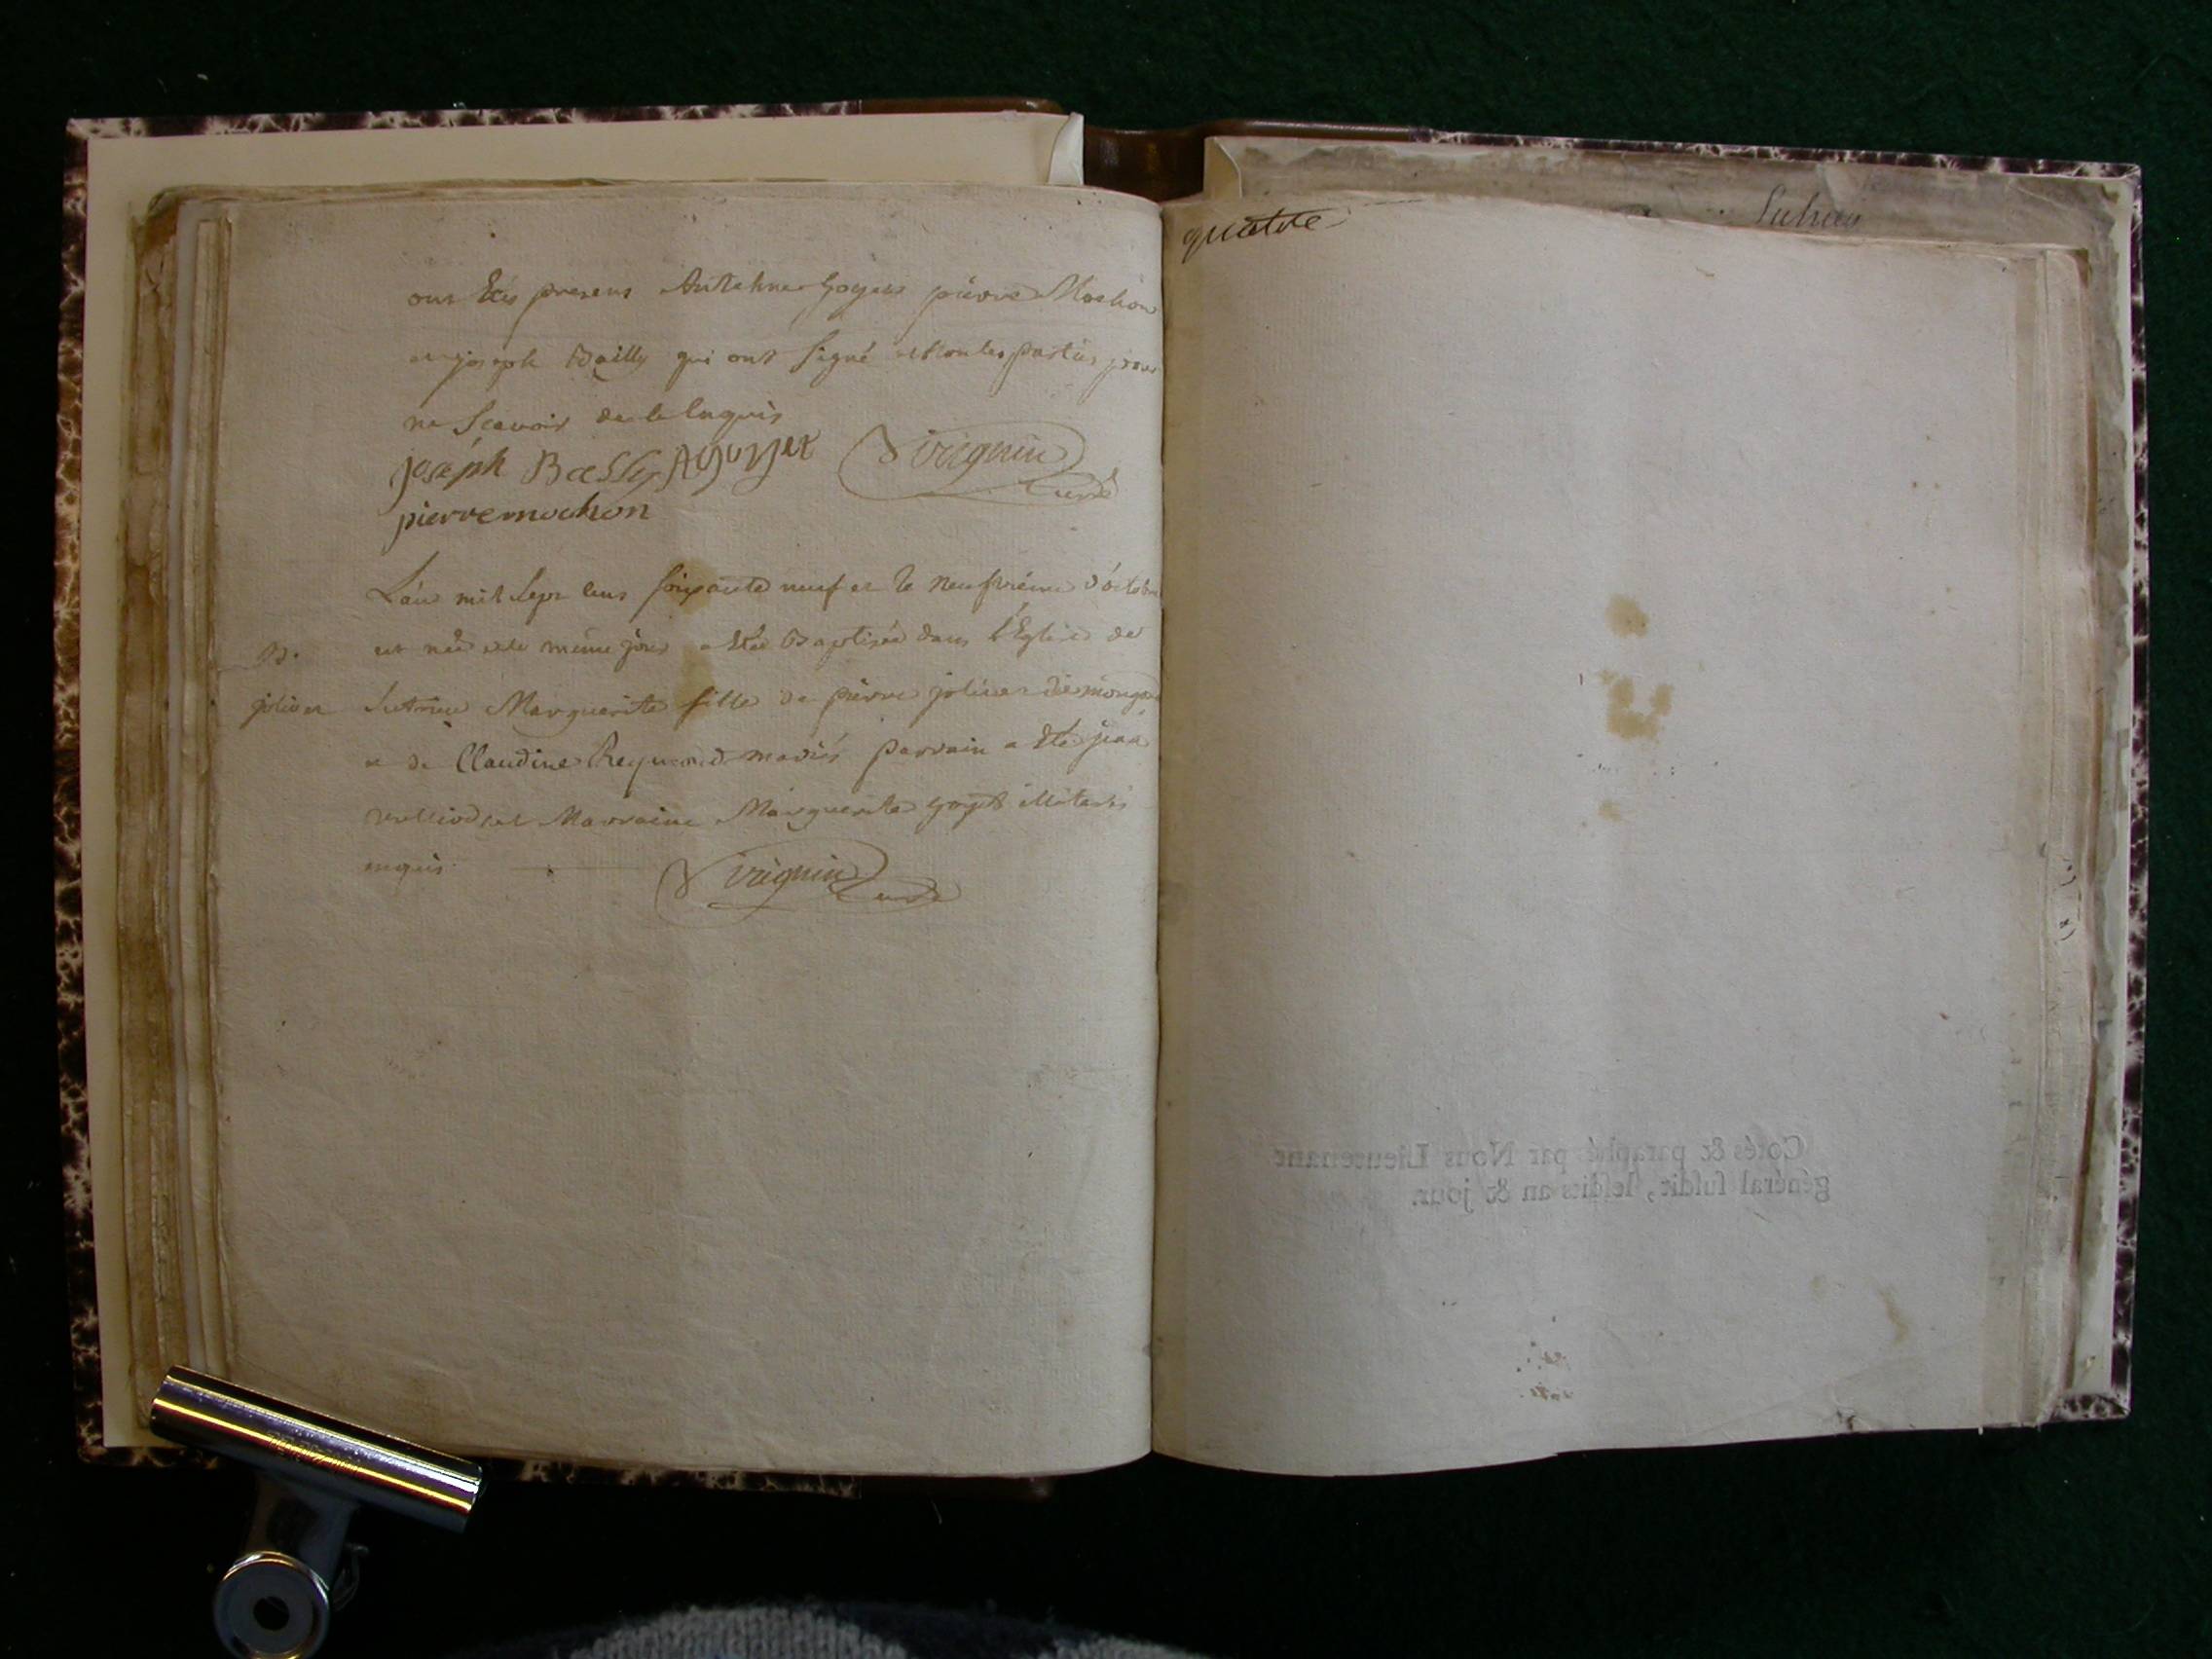 ont Etés presens Antehne Goyet pierre Mochon
et joseph Bailly qui ont signé et non les parties pour
ne scavoir de ce Enquis
joseph Bally AGoyyet Virignin Curé
pierre mochon
L'an mil sept cens soixante neuf et le neufvième d'octobre
B. est née et le même jour a Eté Baptisée dans l'Eglise de
jolivet Lutrieu Marguerite fille de pierre jolivet de
et de Claudine Reymond mariés parrain a Eté jean
et Marraine Marguerite Goyet illiterés
enquis Virignin Curé
quatre
Cotés & paraphé par Nous Lieutenant
général susdit, lesdits an & jour.